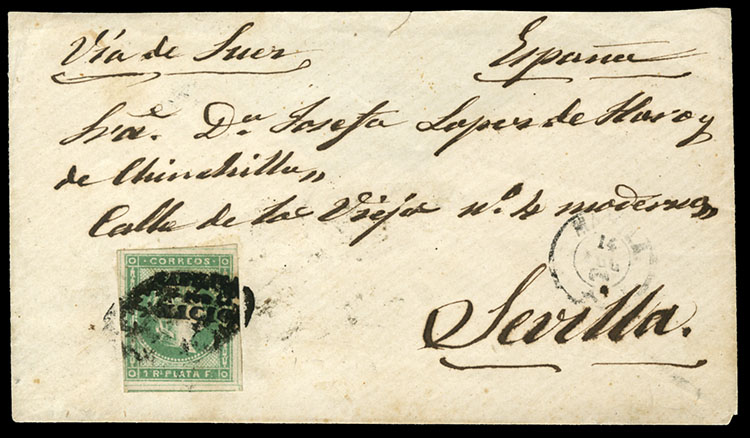 Via de Suez
España
Sra. Da. Josefa Lopez de Haro y
de Chinchilla,,
Calle de las Viejas no. 4 moderno,,
Sevilla.
CORREOS
1 RL. PLATA F.